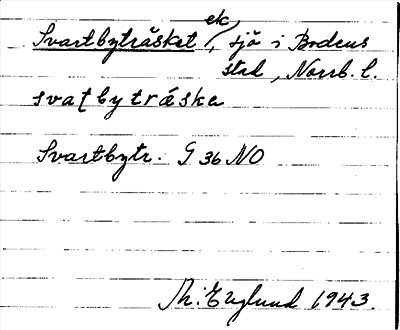 Svartbyträsket, ek, sjö i Bodens
stad, Norrb. l.
svatbyträske
Svartbytr. G 36 NO
Th. Englund 1943.